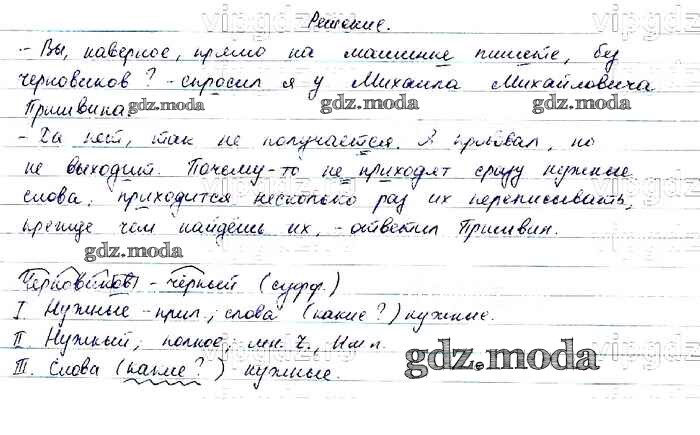 Решение.
- Вы, наверное, прямо на машинке пишете, без
черновиков? - спросил я у Михаила Михайловича
Пришвина.
gdz.moda gdz.moda gdz.moda
- Да нет, так не получается. Я пробовал, но
не выходит. Почему-то не приходят сразу нужные
слова, приходится несколько раз их переписывать,
прежде чем найдёшь их, - ответил Пришвин.
gdz.moda
Черновиков - чёрный (суфф.)
I. Нужные - прил.; слова (какие?) нужные.
II. Нужный; полное; мн. ч., Им п.
III. Слова (какие?) - нужные.
gdz.moda